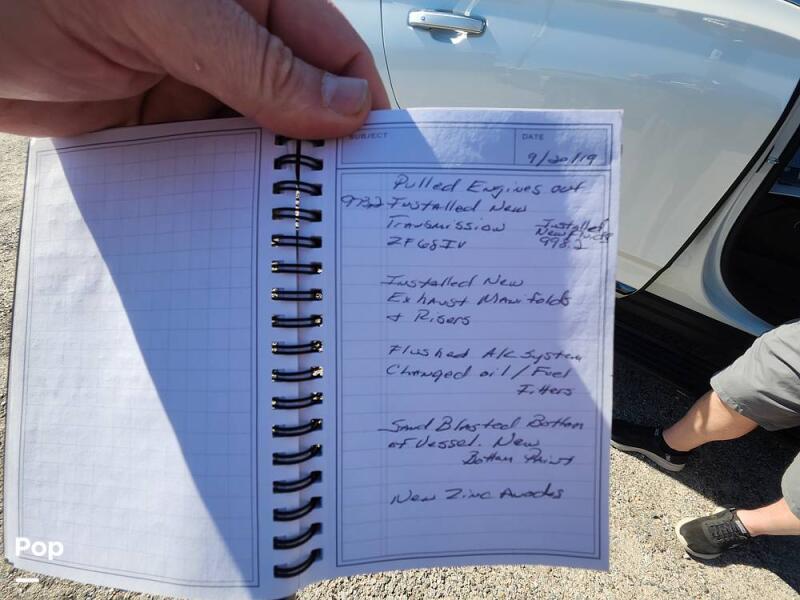 SUBJECT
DATE
9/20/19
Pulled Engines out
Installed New
Transmission
ZF68IV
Installed
New
998.2
Installed New
Exhaust Manifolds
& Risers
Flushed A/C System
Changed oil / Fuel
Filters
Sand Blasted Bottom
of Vessel. New
Bottom Paint
New Zinc Anodes
Pop